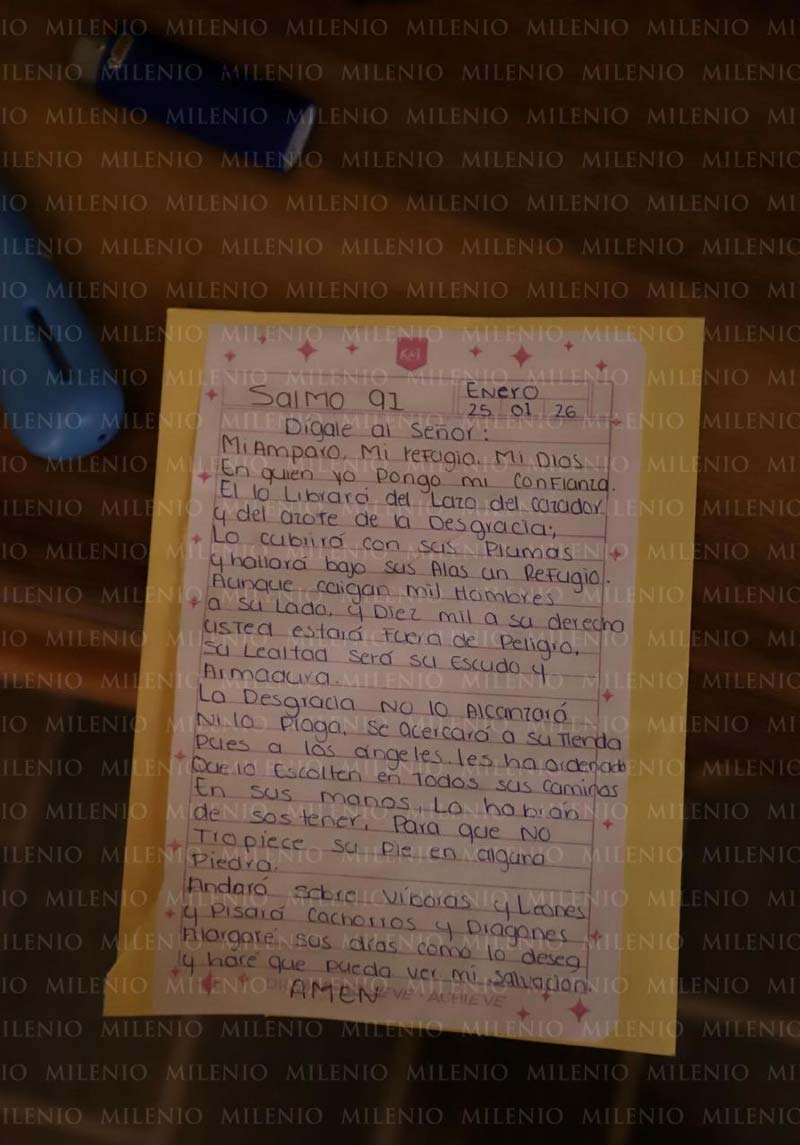 MILENIO
KAI
Salmo 91 Enero
25 01 26
Digale al señor:
Mi Amparo, Mi refugio, Mi Dios
En quien yo Pongo mi Confianza.
El lo Librará del Lazo del cazador
y del azote de la Desgracia;
Lo cubrirá con sus Plumas
y hallará bajo sus Alas un Refugio.
Aunque caigan mil Hombres
a su Lado, y Diez mil a su derecha
usted estará Fuera de Peligro,
su Lealtad será su Escudo y
Armadura.
La Desgracia NO lo Alcanzará
Ni la Plaga, se acercará a su Tienda
Pues a los ángeles les ha ordenado
Que lo Escolten en Todos sus caminos
En sus manos, Lo habrán
de sostener, Para que NO
Tropiece su Pie en alguna
Piedra.
Andará sobre víboras y Leones
y Pisará Cachorros y Dragones
Alargaré sus días como lo desea
y haré que pueda ver mi salvación.
AMEN
ACHIEVE